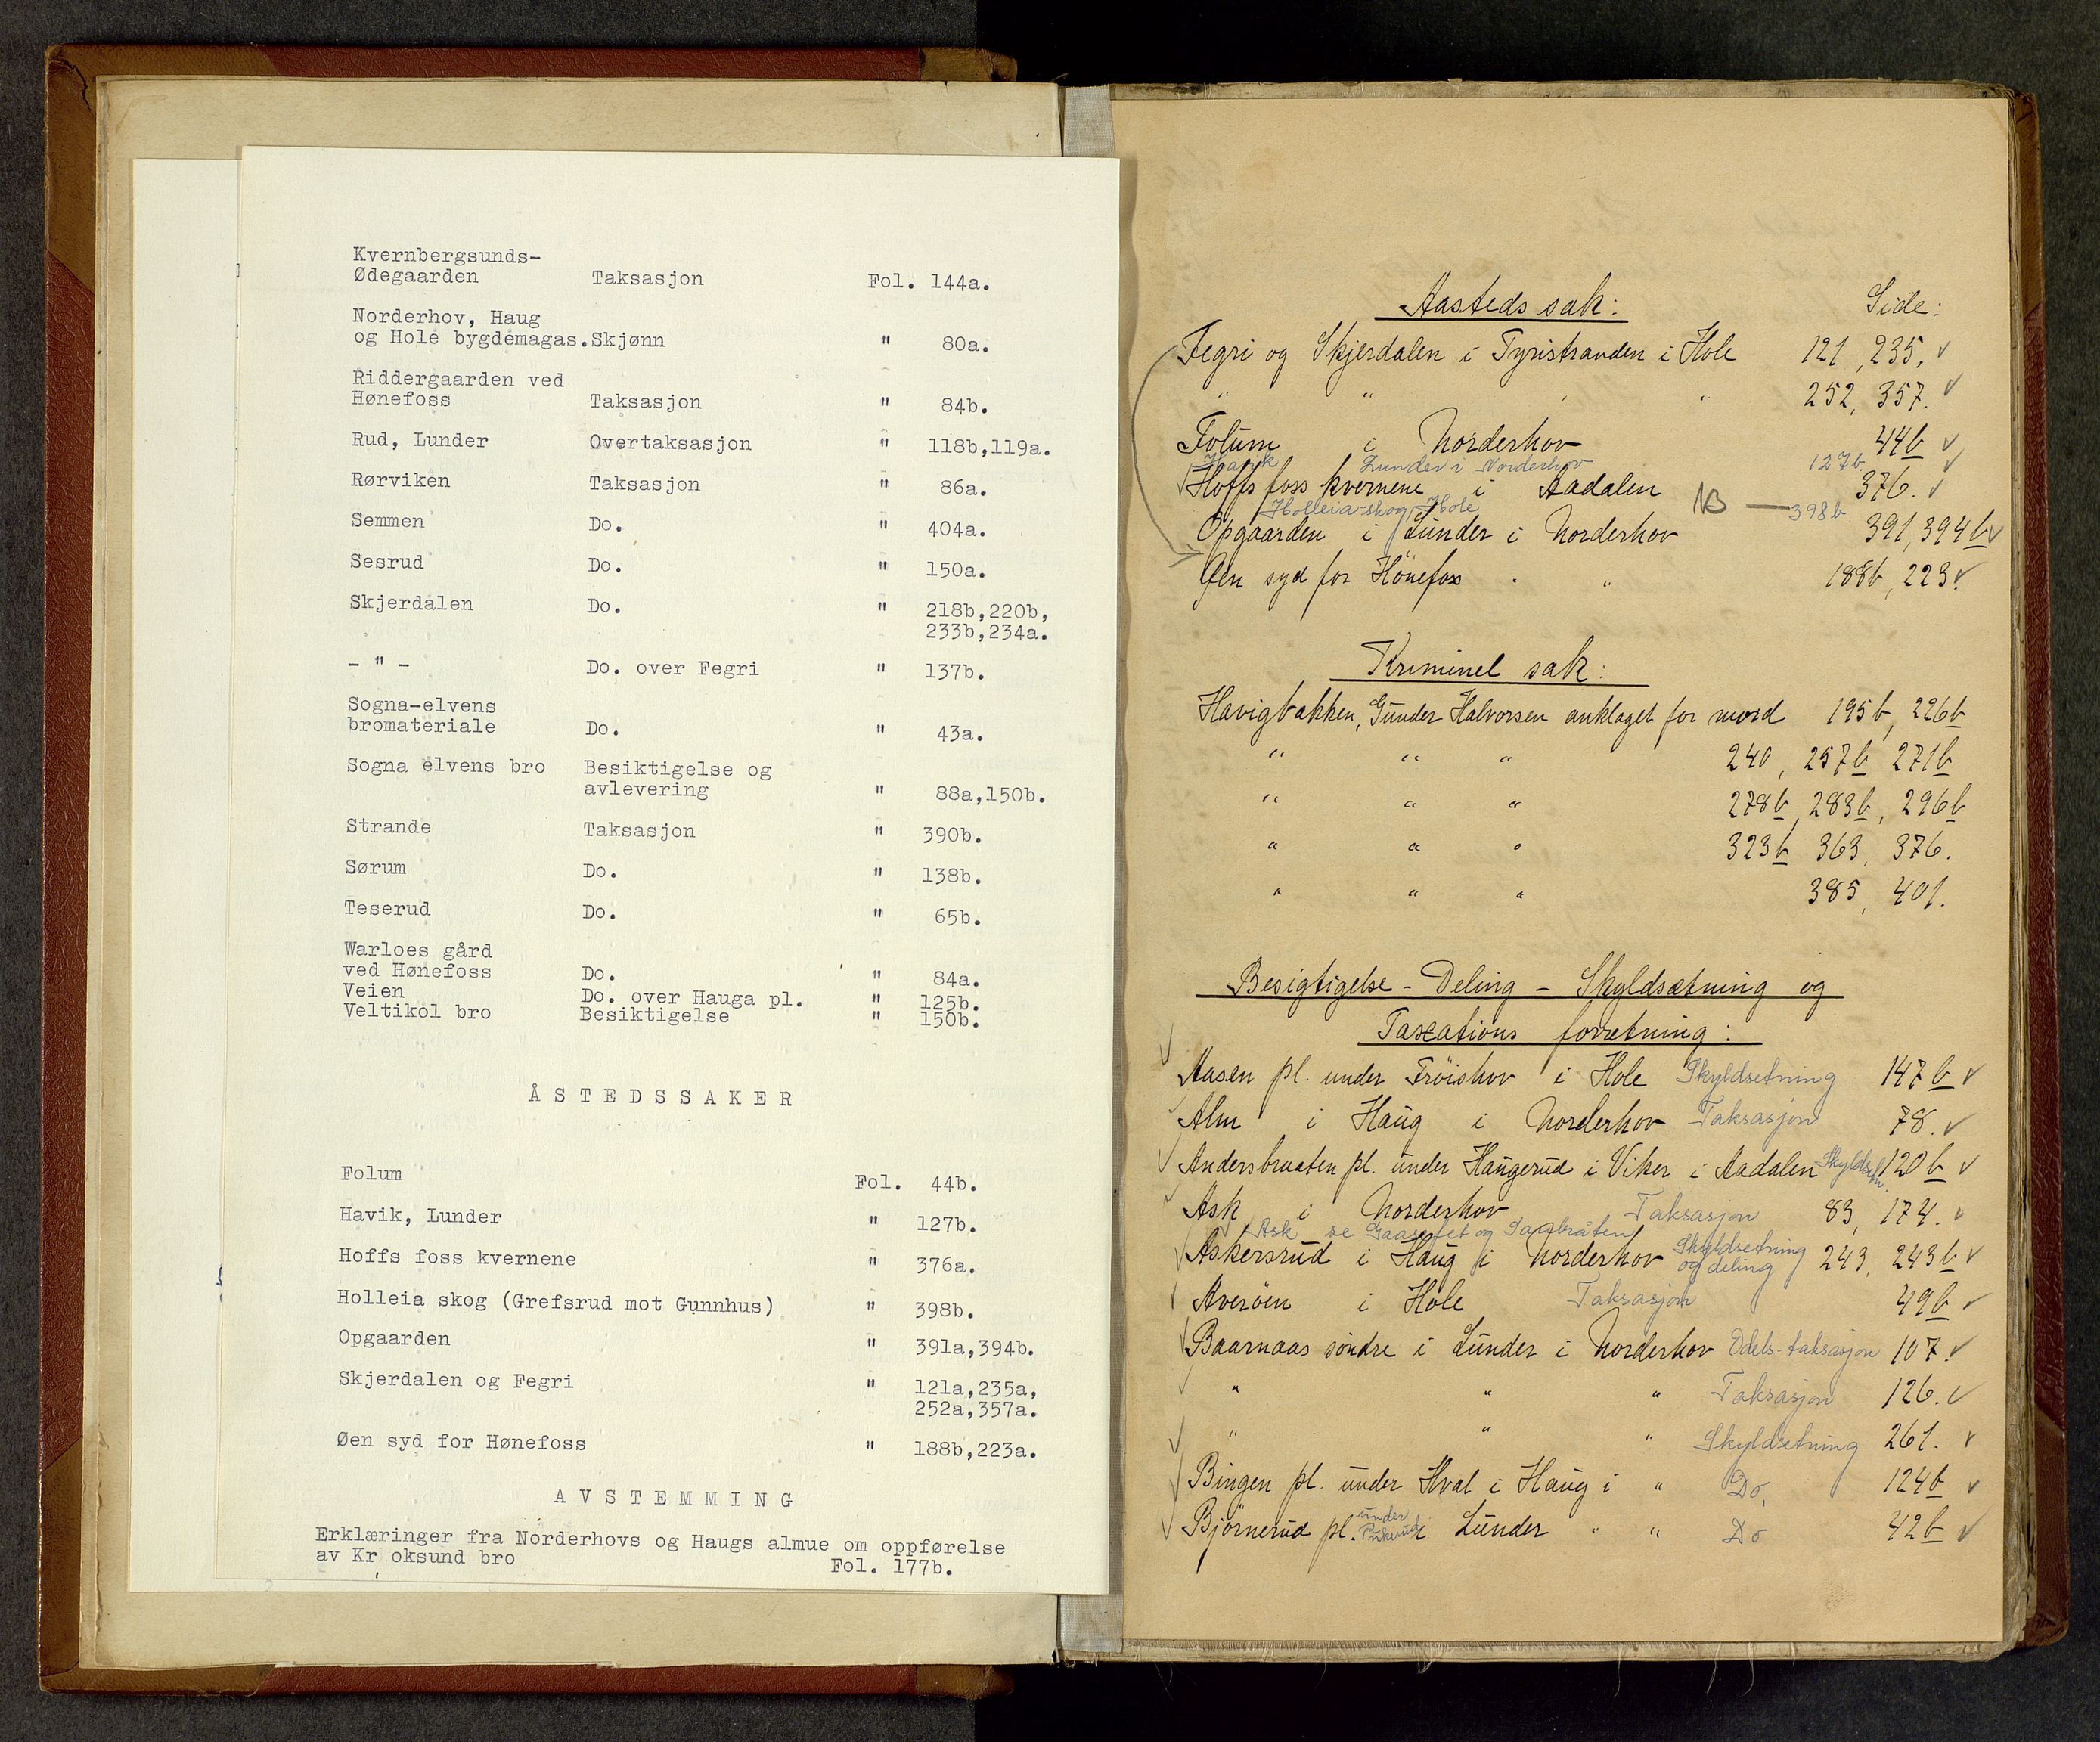 Kvernbergsunds-
Ødegaarden Taksasjon Fol. 144a.
Norderhov, Haug
og Hole bygdemagas. Skjønn " 80a.
Riddergaarden ved
Hønefoss Taksasjon " 84b.
Rud, Lunder Overtaksasjon " 118b,119a.
Rørviken Taksasjon " 86a.
Semmen Do. " 404a.
Sesrud Do. " 150a.
Skjerdalen Do. " 218b,220b,
233b,234a.
- " - Do. over Fegri " 137b.
Sogna-elvens
bromateriale Do. " 43a.
Sogna elvens bro Besiktigelse og
avlevering " 88a,150b.
Strande Taksasjon " 390b.
Sørum Do. " 138b.
Teserud Do. " 65b.
Warloes gård
ved Hønefoss Do. " 84a.
Veien Do. over Hauga pl. " 125b.
Veltikol bro Besiktigelse " 150b.
ÅSTEDSSAKER
Folum Fol. 44b.
Havik, Lunder " 127b.
Hoffs foss kvernene " 376a.
Holleia skog (Grefsrud mot Gunnhus) " 398b.
Opgaarden " 391a,394b.
Skjerdalen og Fegri " 121a,235a,
252a,357a.
Øen syd for Hønefoss " 188b,223a.
AVSTEMMING
Erklæringer fra Norderhovs og Haugs almue om oppførelse
av Kr oksund bro Fol. 177b.
Aasteds sak: Side:
Fegri og Skjerdalen i Tyristranden i Hole 121, 235. ✓
" " " " 252, 357. ✓
Folum i Norderhov 44b ✓
Havik Lunder i Norderhov 127b ✓
Hoffs foss kvernene i Aadalen 376. ✓
Holleia-skog, Hole NB — 398b
Opgaarden i Lunder i Norderhov 391, 394b ✓
Øen syd for Hönefos " " 188b, 223 ✓
Kriminel sak:
Havigbakken, Gunder Halvorsen anklaget for mord 195b, 226b
" " " 240, 257b 271b
" " " 278b, 283b, 296b
" " " 323b 363, 376.
" " " 385, 401.
Besigtigelse - Deling - Skyldsætning og
Taxations forretning:
✓ Aasen pl. under Fröishov i Hole Skyldsetning 147b ✓
✓ Alm i Haug i Norderhov Taksasjon 78. ✓
✓ Andersbraaten pl. under Haugerud i Viker i Aadalen Skyldsetn. 120b ✓
✓ Ask i Norderhov Taksasjon 83, 174. ✓
Ask se Gaasefet og Sagbråten
✓ Askersrud i Haug i Norderhov Skyldsetning og deling 243, 243b ✓
✓ Averöen i Hole Taksasjon 49b ✓
✓ Baarnaas söndre i Lunder i Norderhov Odels-taksasjon 107. ✓
✓ " " " Taksasjon 126. ✓
✓ " " " Skyldsetning 261. ✓
✓ Bingen pl. under Hval i Haug i " Do. 124b ✓
✓ Björnerud pl. under i Lunder " " Do 42b ✓